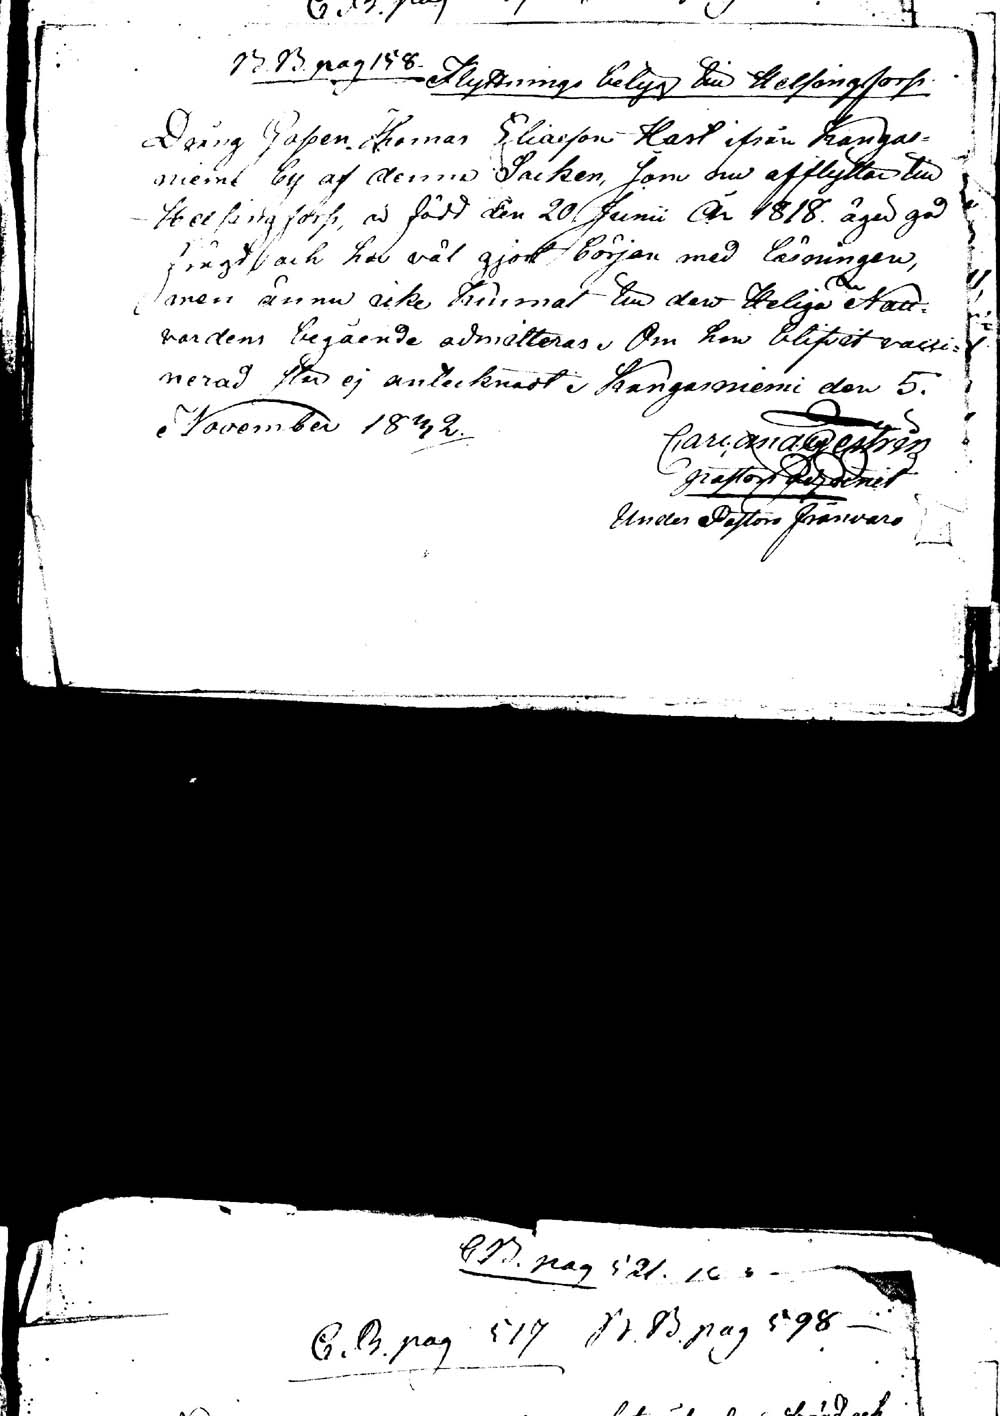 N. B. pag 158. Flyttnings betyg till Helsingfors
Dräng Gossen Thomas Eliaeson Hast ifrån Kangas-
niemi by af denna Socken, som nu afflyttar till
Helsingfors, är född den 20 Junii År 1818. äger god
och har väl gjort början med läsningen,
men ännu icke kunnat till den Heliga Natt-
vardens begående admitteras. Om han blifvit vacci-
nerad står ej antecknadt. Kangasniemi den 5.
November 1832.
Under Pastors frånvaro
C.B. pag 521.
C. B. pag 517 N. B. pag 598